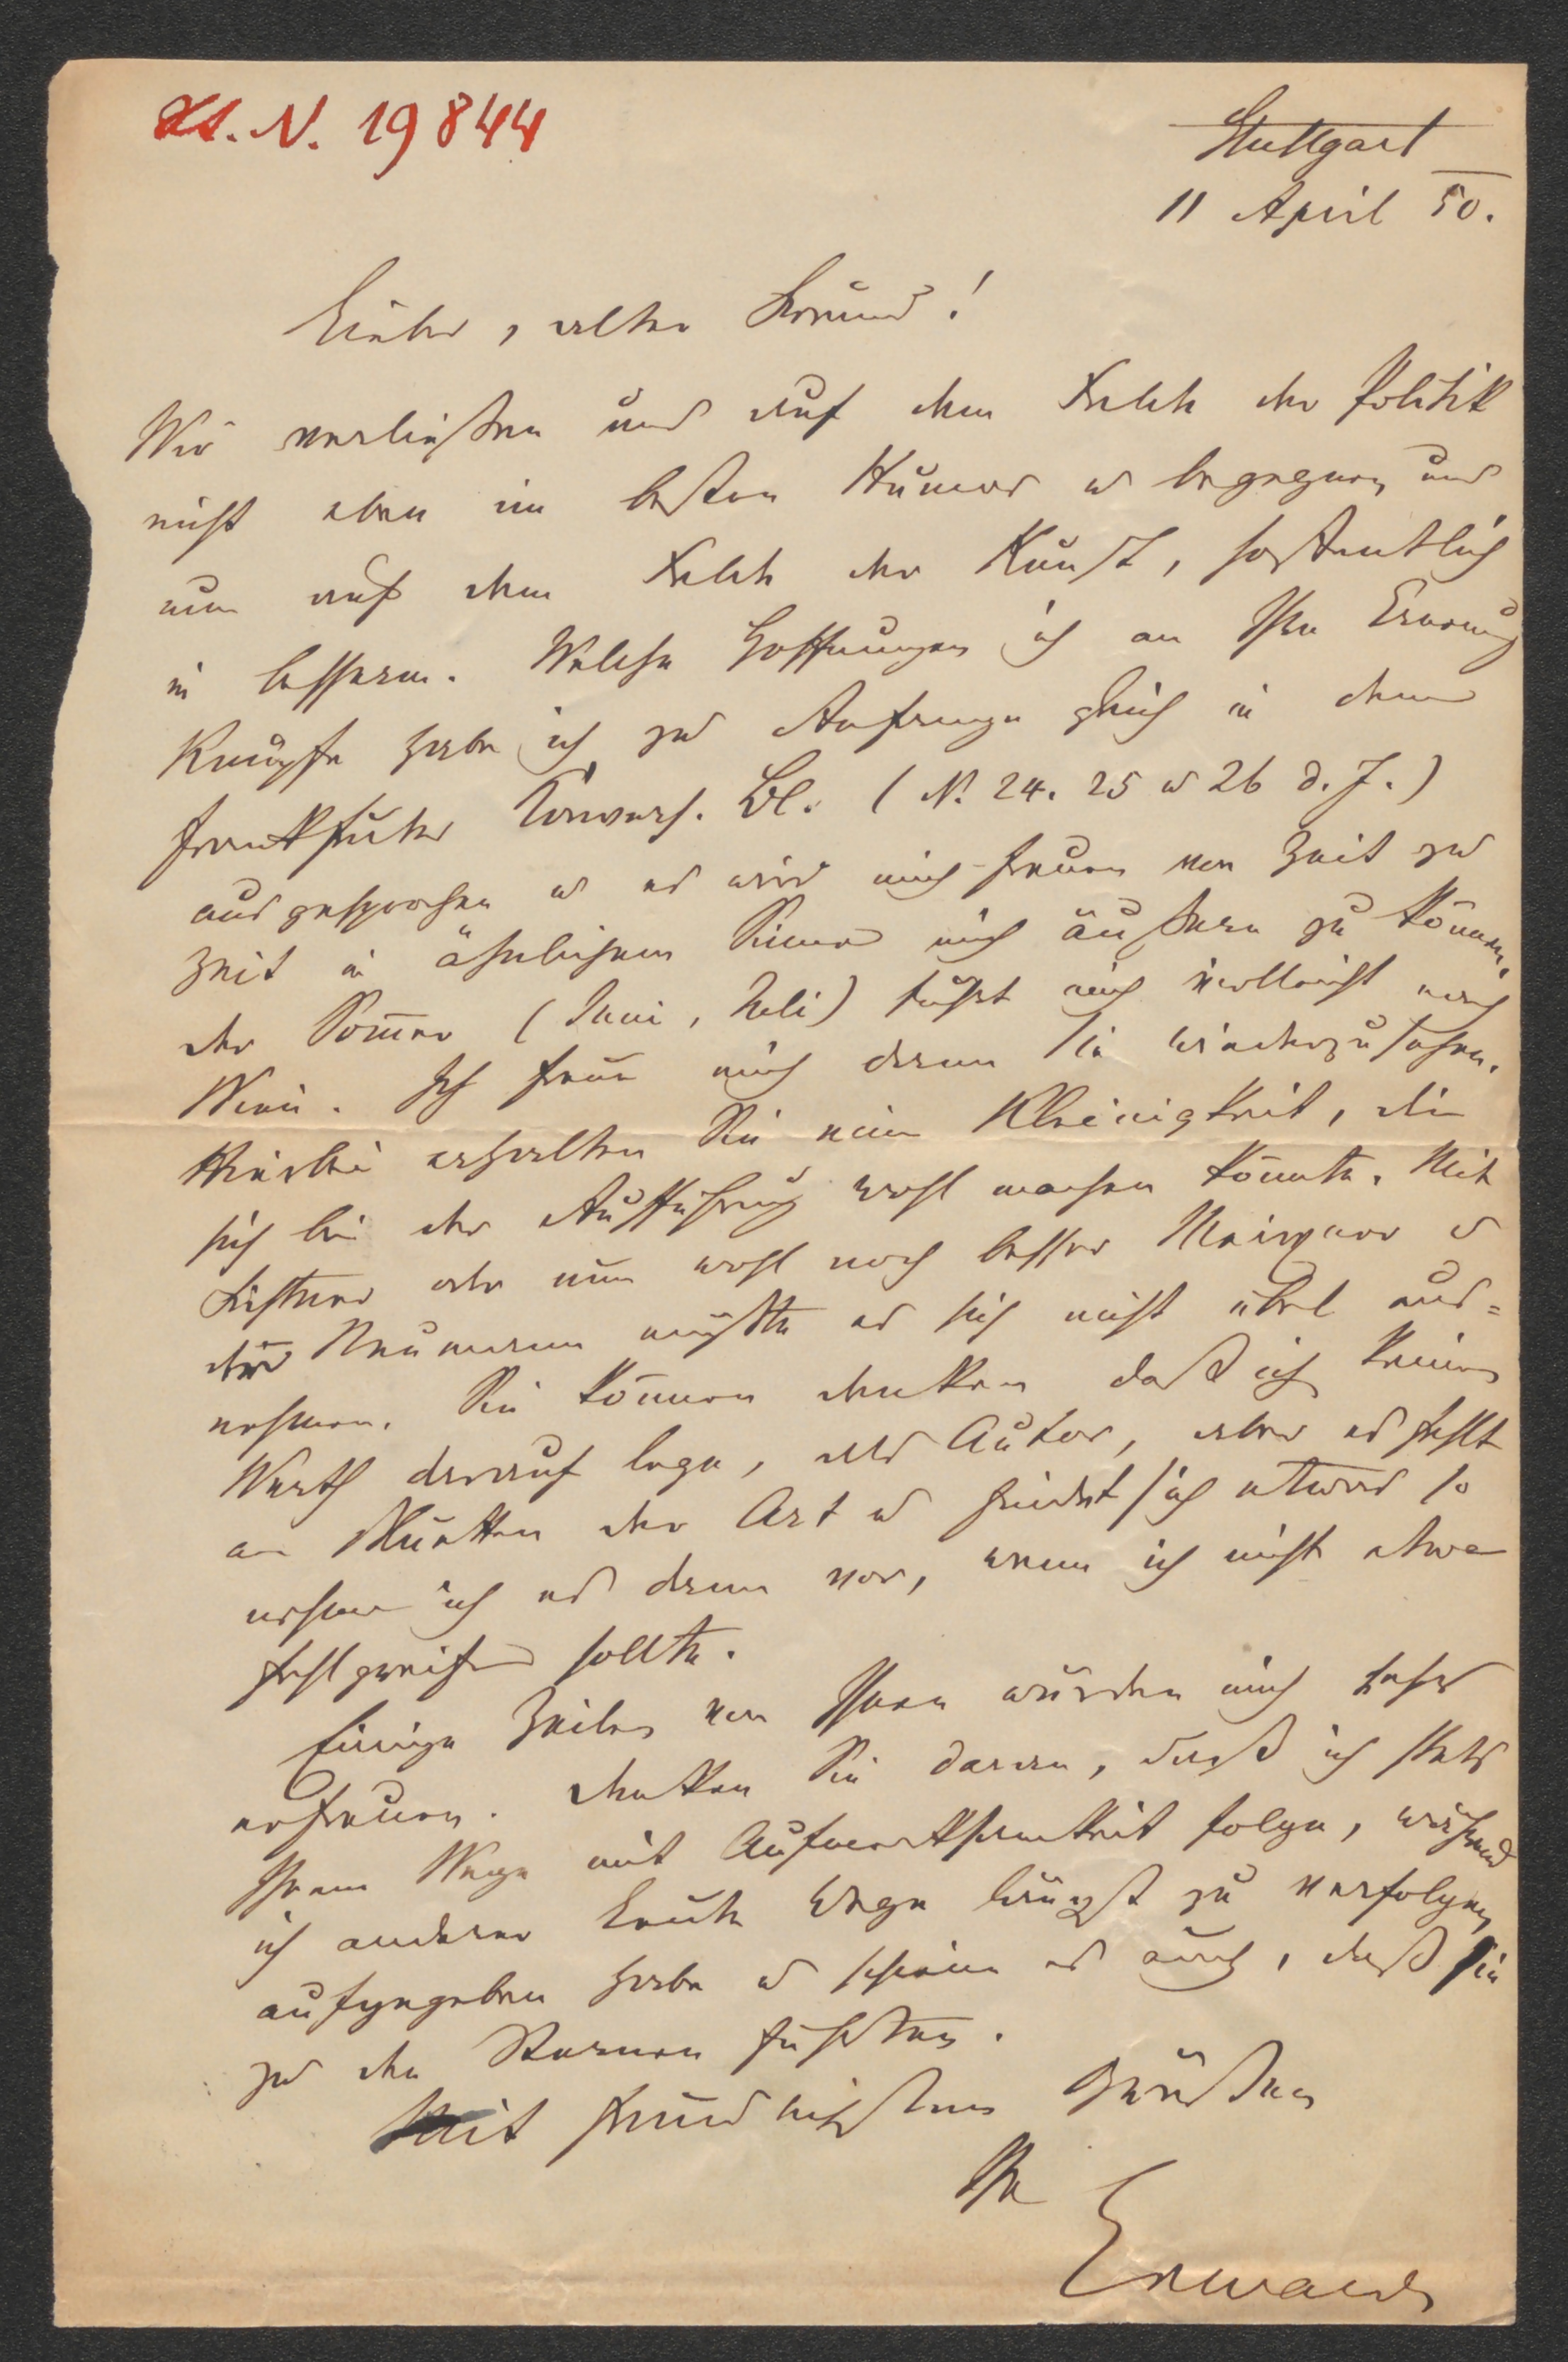 H.I.N. 19844
Stuttgart
11 April 50.
Lieber, alter Freund!
Wir verließen uns auf dem Felde der Politik
nicht eben im besten Humor u begegnen uns
nun auf dem Felde der Kunst, hoffentlich
in besserem. Welche Hoffnungen ich an Ihre Ernennung
knüpfe habe ich zu Anfange gleich in dem
Frankfurter Convers. Bl. (N. 24. 25 u 26 d. J.)
ausgesprochen u es wird mich freuen von Zeit zu
Zeit in ähnlichem Sinne mich äußern zu können.
Der Sommer (Juni, Juli) führt mich vielleicht nach
Wien. Ich freue mich dann Sie wiederzusehen.
Hierbei erhalten Sie eine Kleinigkeit, die
sich bei der Aufführung wohl machen könnte. Mit
Fichtner oder nun wohl noch besser Meixner u
der Neumann müßte es sich nicht übel aus=
nehmen. Sie können denken daß ich keinen
Werth darauf lege, als Autor, aber es fehlt
an Stücken der Art u findet sich etwas so
nehme ich es dann vor, wenn ich nicht etwa
fehlgreifen sollte.
Einige Zeilen von Ihnen würden mich sehr
erfreuen. Denken Sie daran, daß ich stets
Ihrem Wege mit Aufmerksamkeit folge, während
ich anderer Leute Wege längst zu verfolgen
aufgegeben habe u schiene es auch, daß sie
zu den Sternen führten.
Mit freundlichsten Grüßen
Ihr